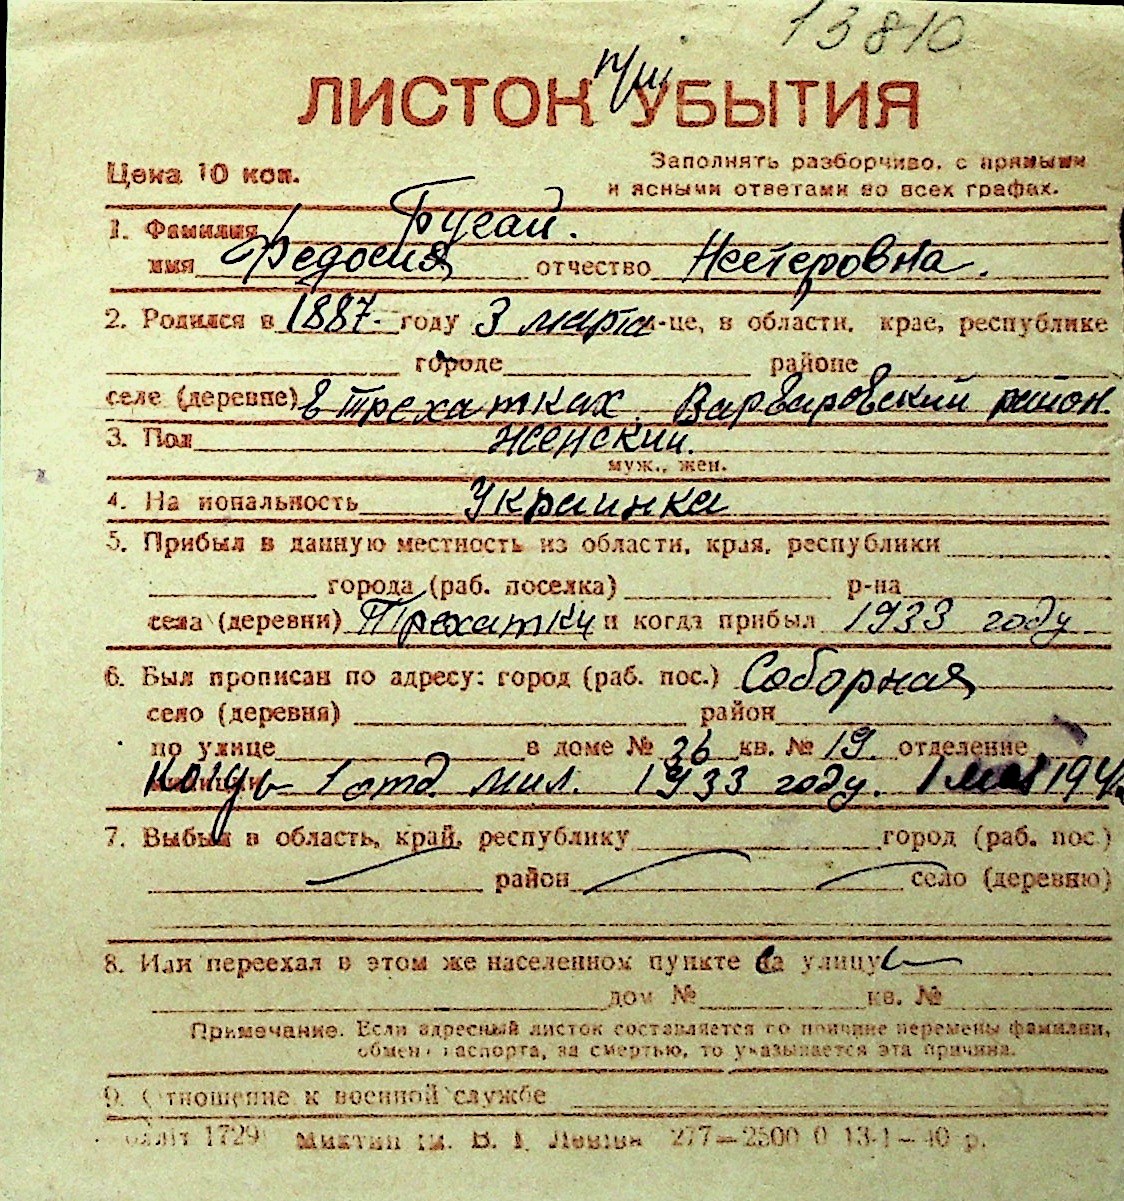 13810
п/ш
ЛИСТОК УБЫТИЯ
Цена 10 коп.
Заполнять разборчиво, с прямыми
и ясными ответами во всех графах.
1. Фамилия Бугай.
имя Федосия отчество Нестеровна.
2. Родился в 1887. году 3 марта м-це, в области, крае, республике
городе районе
селе (деревне) в Трехатках, Варваровский район.
3. Пол женский.
муж., жен.
4. На иональность Украинка
5. Прибыл в данную местность из области, края, республики
города (раб. поселка) р-на
села (деревни) Трехатки и когда прибыл 1933 году
6. Был прописан по адресу: город (раб. пос.) Соборная
село (деревня) район
по улице в доме № 36 кв. № 19. отделение
милиции 1 отд. мил. 1933 году. 1 мая 194
7. Выбыл в область, край, республику город (раб. пос.)
район село (деревню)
8. Или переехал в этом же населенном пункте на улицу
дом № кв. №
Примечание. Если адресный листок составляется по причине перемены фамилии,
обмен паспорта, за смертью, то указывается эта причина.
9. Отношение к военной службе
1729 277—2500 0 13-1—40 р.